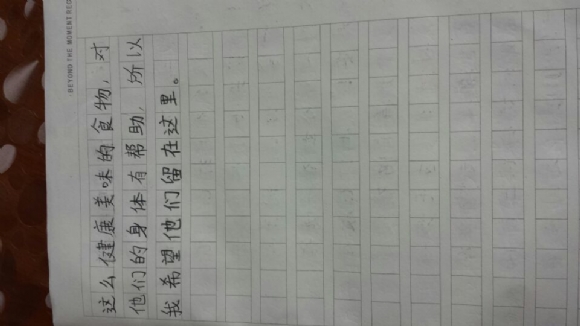 BEYOND THE MOMENT REC
这么健康美味的食物，对
他们的身体有帮助，所以
我希望他们留在这里。